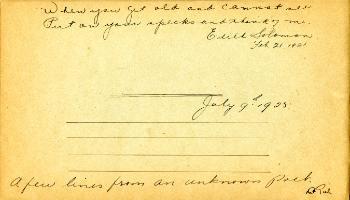 When you get old and cannot see
Put on your specks and think of me.
Edith Solomon
Feb 21. 1921
July 9th 1925
A few lines from an unknown Poet.